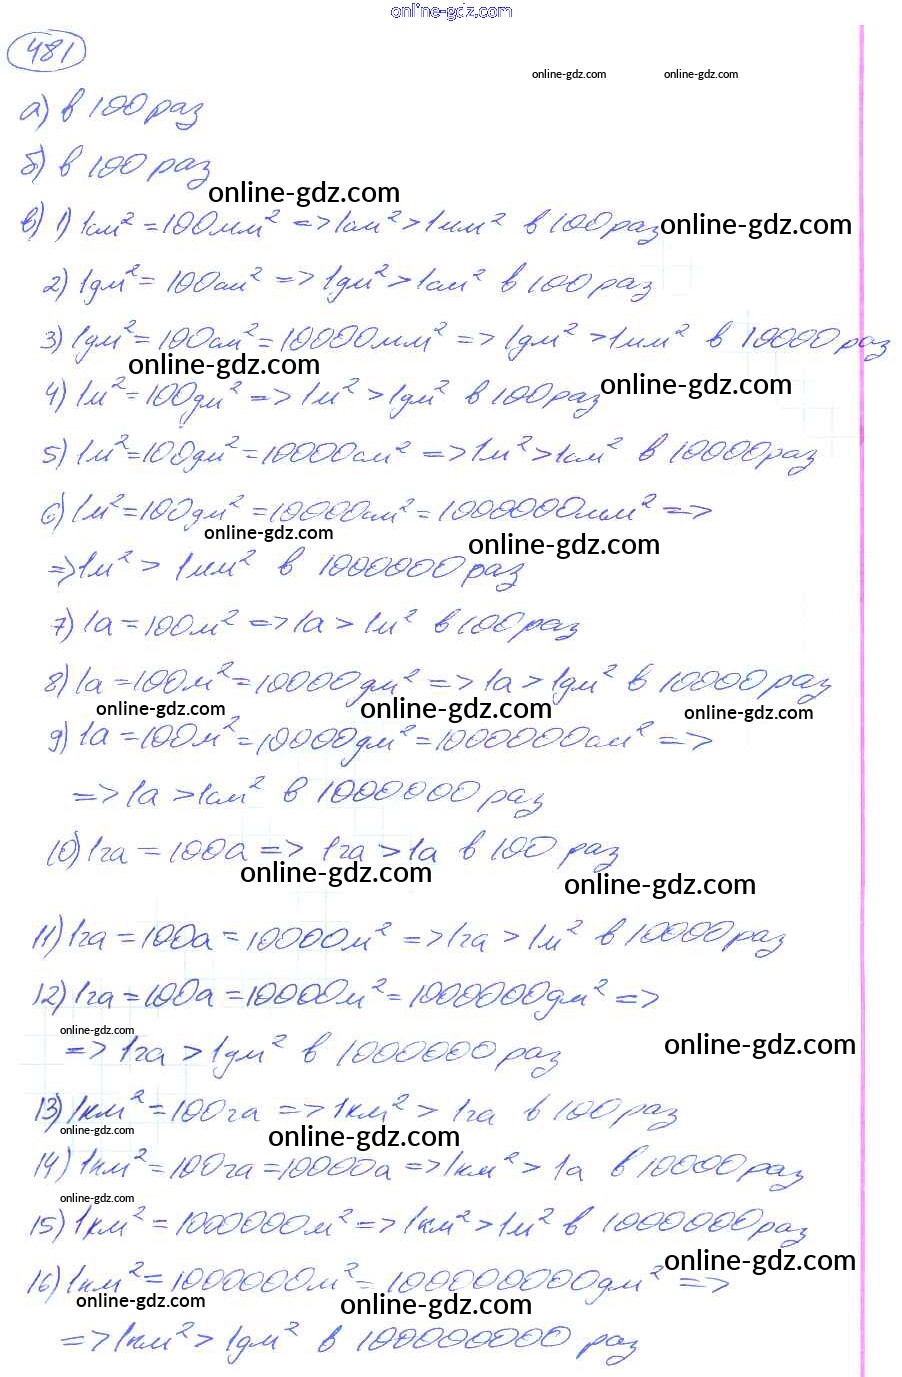 online-gdz.com
481
online-gdz.com online-gdz.com
а) в 100 раз
б) в 100 раз
online-gdz.com
в) 1) 1см² = 100мм² => 1см² > 1мм² в 100 раз
online-gdz.com
2) 1дм² = 100см² => 1дм² > 1см² в 100 раз
3) 1дм² = 100см² = 10000мм² => 1дм² > 1мм² в 10000 раз
online-gdz.com
online-gdz.com
4) 1м² = 100дм² => 1м² > 1дм² в 100 раз
5) 1м² = 100дм² = 10000см² => 1м² > 1см² в 10000 раз
6) 1м² = 100дм² = 10000см² = 1000000мм² =>
online-gdz.com
online-gdz.com
=> 1м² > 1мм² в 1000000 раз
7) 1а = 100м² => 1а > 1м² в 100 раз
8) 1а = 100м² = 10000дм² => 1а > 1дм² в 10000 раз
online-gdz.com online-gdz.com online-gdz.com
9) 1а = 100м² = 10000дм² = 1000000см² =>
=> 1а > 1см² в 1000000 раз
10) 1га = 100а => 1га > 1а в 100 раз
online-gdz.com
online-gdz.com
11) 1га = 100а = 10000м² => 1га > 1м² в 10000 раз
12) 1га = 100а = 10000м² = 1000000дм² =>
online-gdz.com
online-gdz.com
=> 1га > 1дм² в 1000000 раз
13) 1км² = 100га => 1км² > 1га в 100 раз
online-gdz.com
online-gdz.com
14) 1км² = 100га = 10000а => 1км² > 1а в 10000 раз
online-gdz.com
15) 1км² = 1000000м² => 1км² > 1м² в 1000000 раз
online-gdz.com
16) 1км² = 1000000м² = 100000000дм² =>
online-gdz.com
online-gdz.com
=> 1км² > 1дм² в 100000000 раз